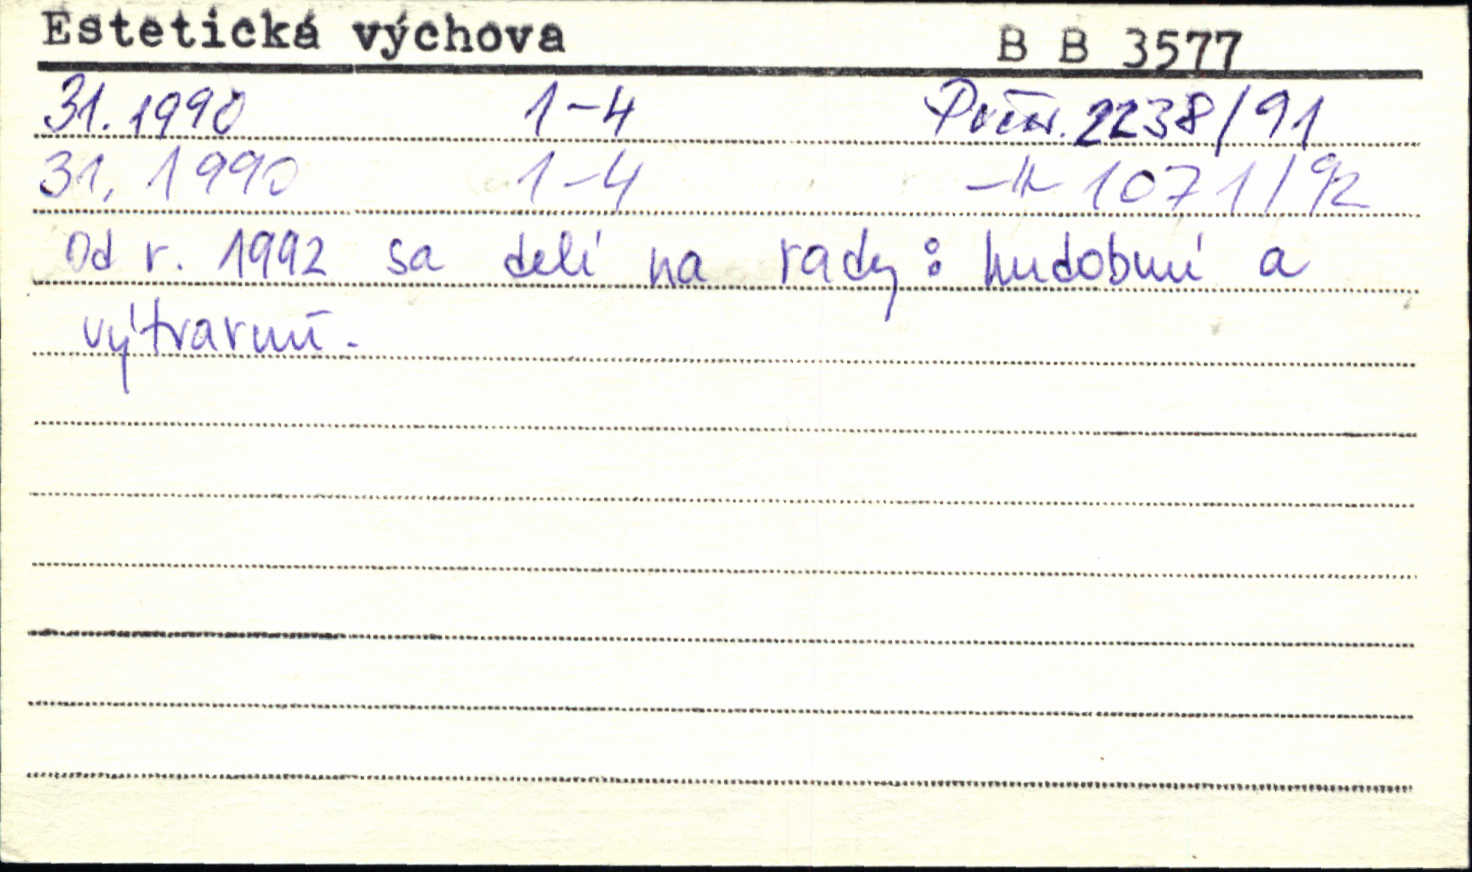 Estetická výchova B B 3577
31. 1990 1-4 2238/91
31, 1990 1-4 -II- 1071/92
Od r. 1992 sa delí na rady: hudobní a
výtvarní.